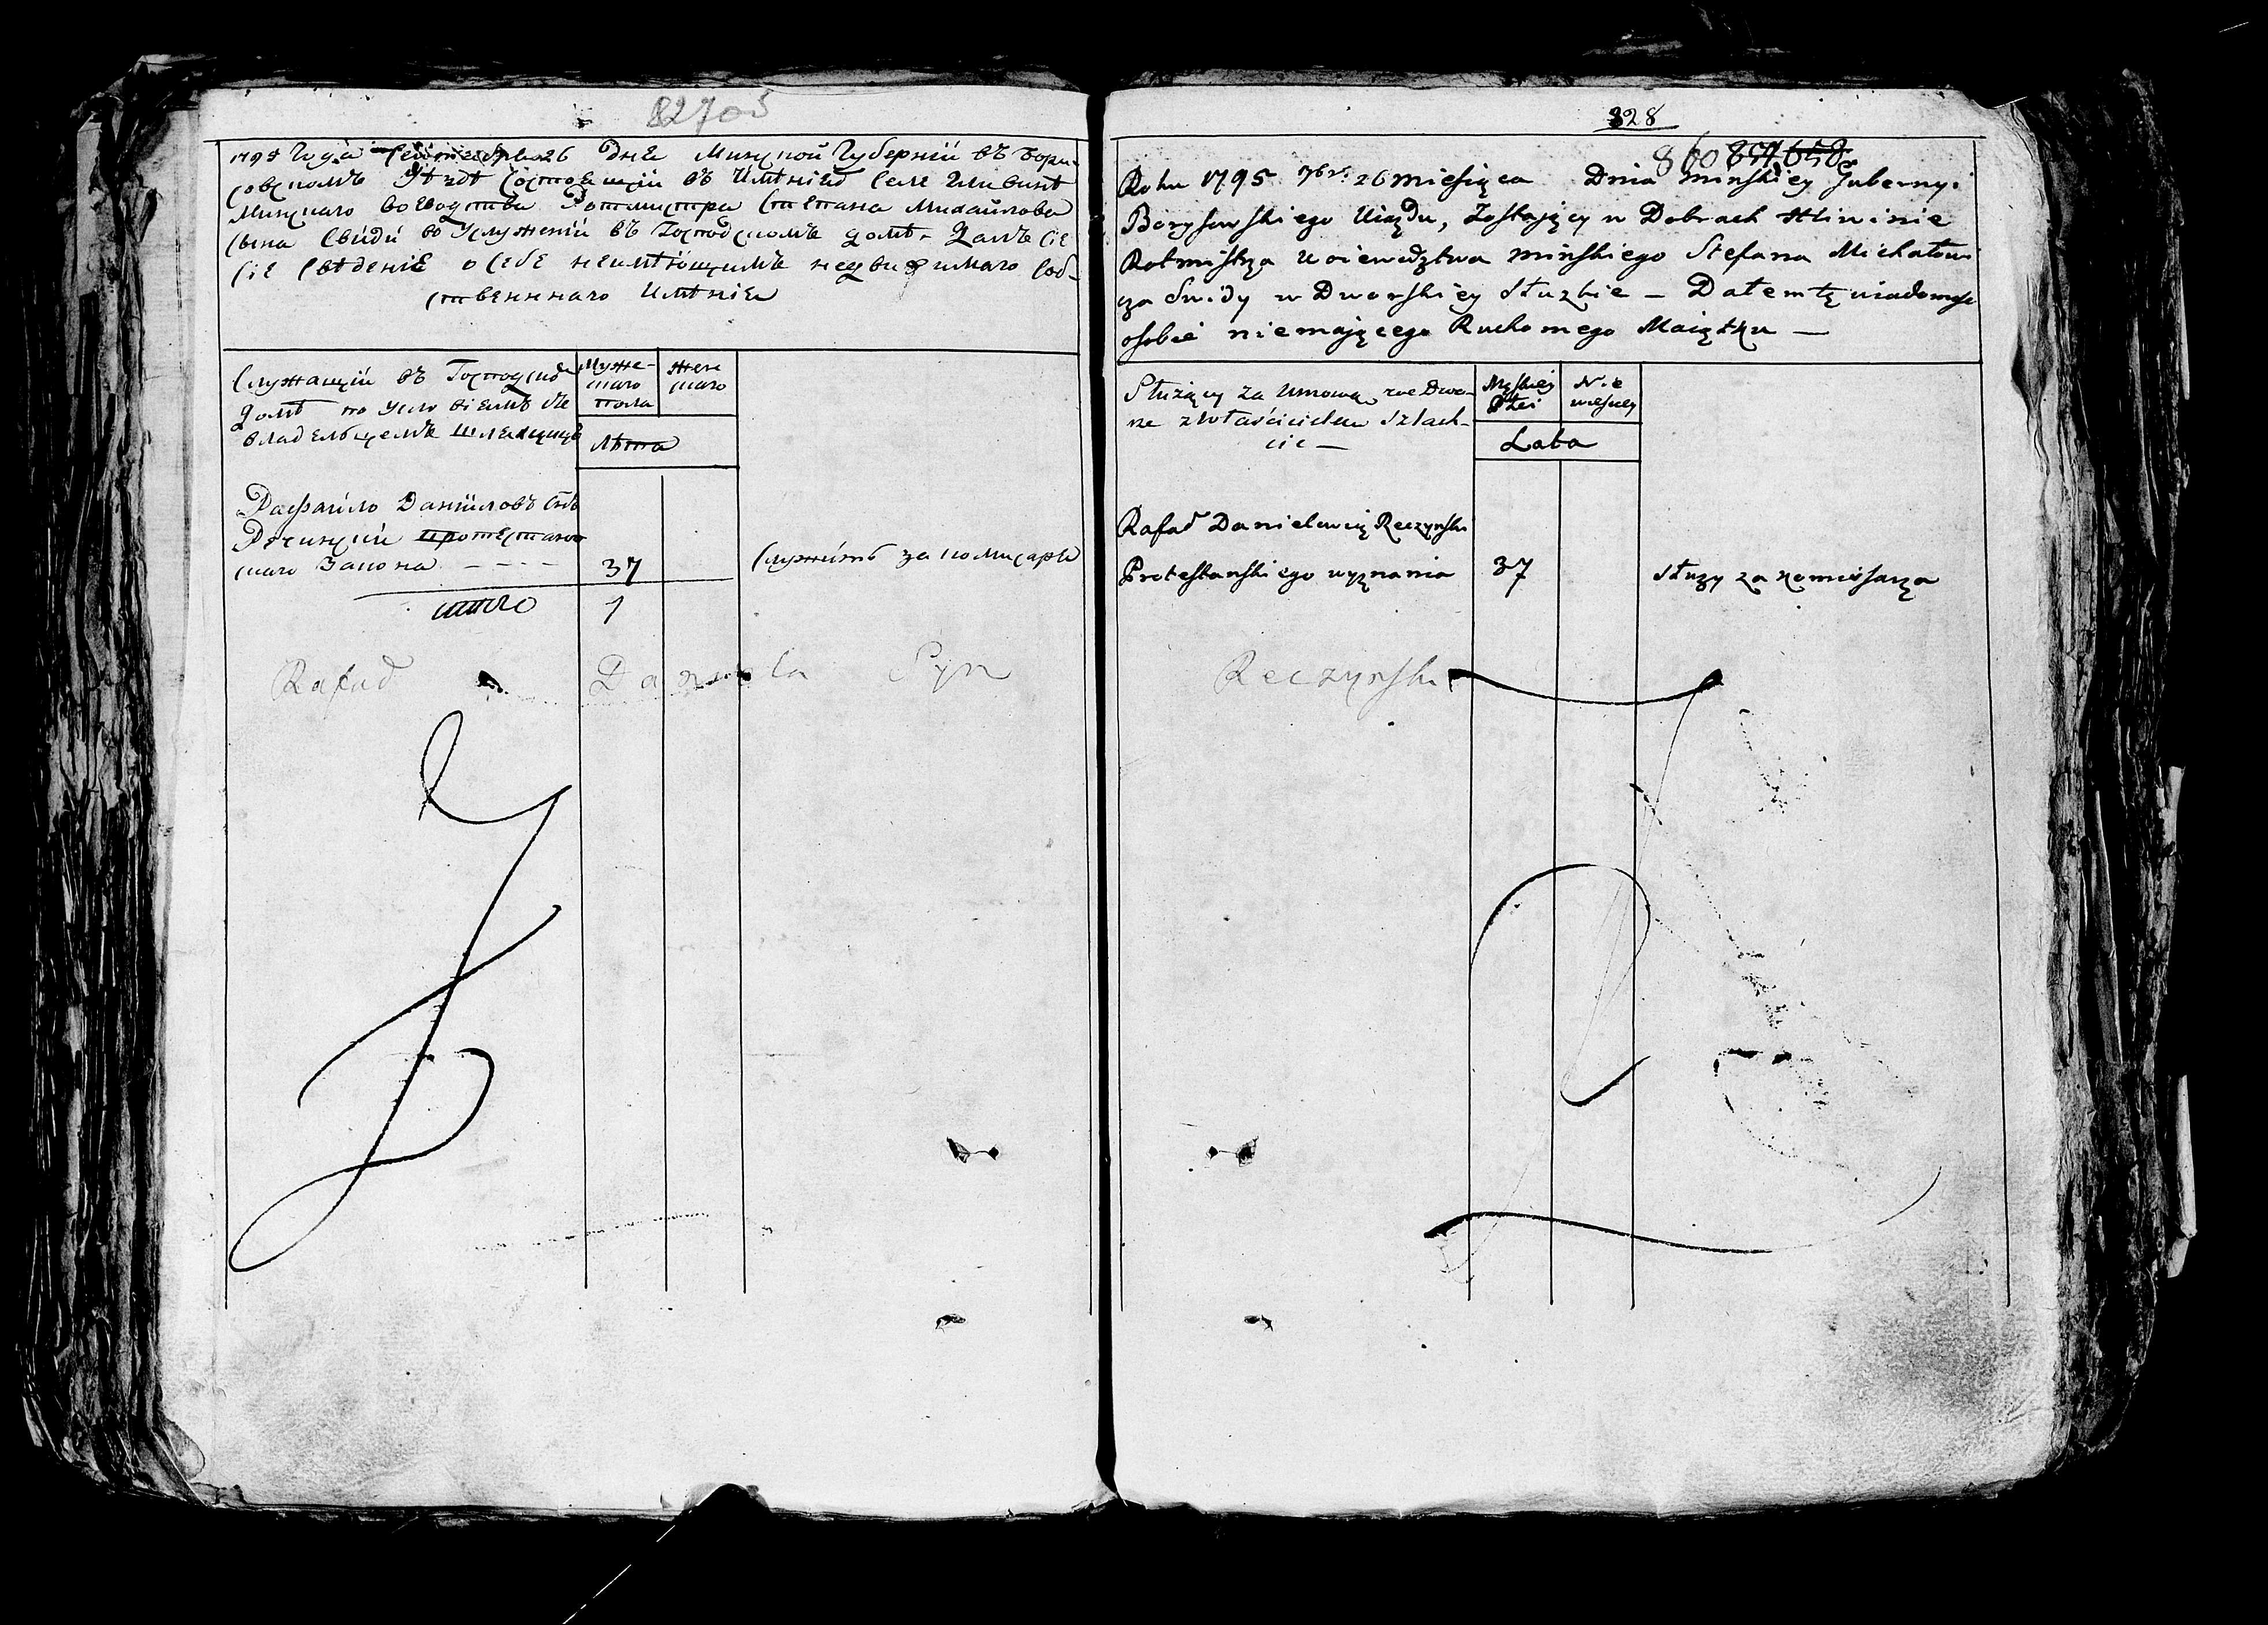 827об
1795 Года Сентебря 26 Дне Минской Губерніи въ Бори-
совскомъ Уѣздѣ состоящіи въ Имѣніи селе Гливинѣ
Минскаго воеводства Ротмистра Степана Михайлова
Сына Свиды во Услуженіи въ Господскомъ домѣ - Далъ сіе
сіе сведеніе о себе неимѣющимъ недвижимаго соб-
ственнаго Имѣнія
Служащіи въ Господскомъ
домѣ по Условіемъ съ
владельцемъ Шляхтичь
Муже-
скаго
пола
Жен
скаго
Лѣта
Рафаило Даніиловъ Снъ
Речинскіи протестант
скаго Закона - - - -
37
Служитъ за комисаря
итого
1
Rafał Daniela Syn
328
860
Roku 1795 7br. 26 miesiąca Dnia Minskiey Gubernyi
Borysowskiego Uiazdu, Zostający w Dobrach Hliwinie
Rotmistrza Woiewodztwa Minskiego Stefana Michałowi
cza Swidy w Dworskiey Służbie — Dałem tę wiadomość
osobie niemaiącego Ruchomego Maiątku —
Służący za Umową we Dwo-
rze z Właścicielem Szlach-
cic —
Męskiey
Płci
Nie
wieściey
Lata
Rafał Danielewicz Reczynski
Protestanskiego wyznania
37
służy za komissarza
Reczynski